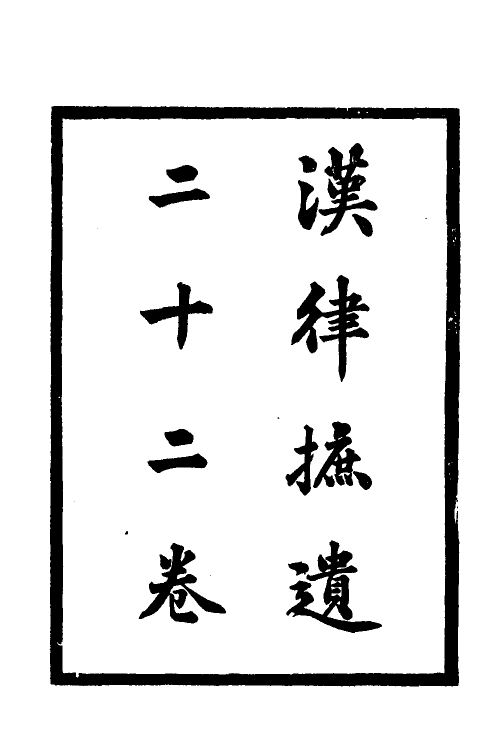 漢律摭遺
二十二卷